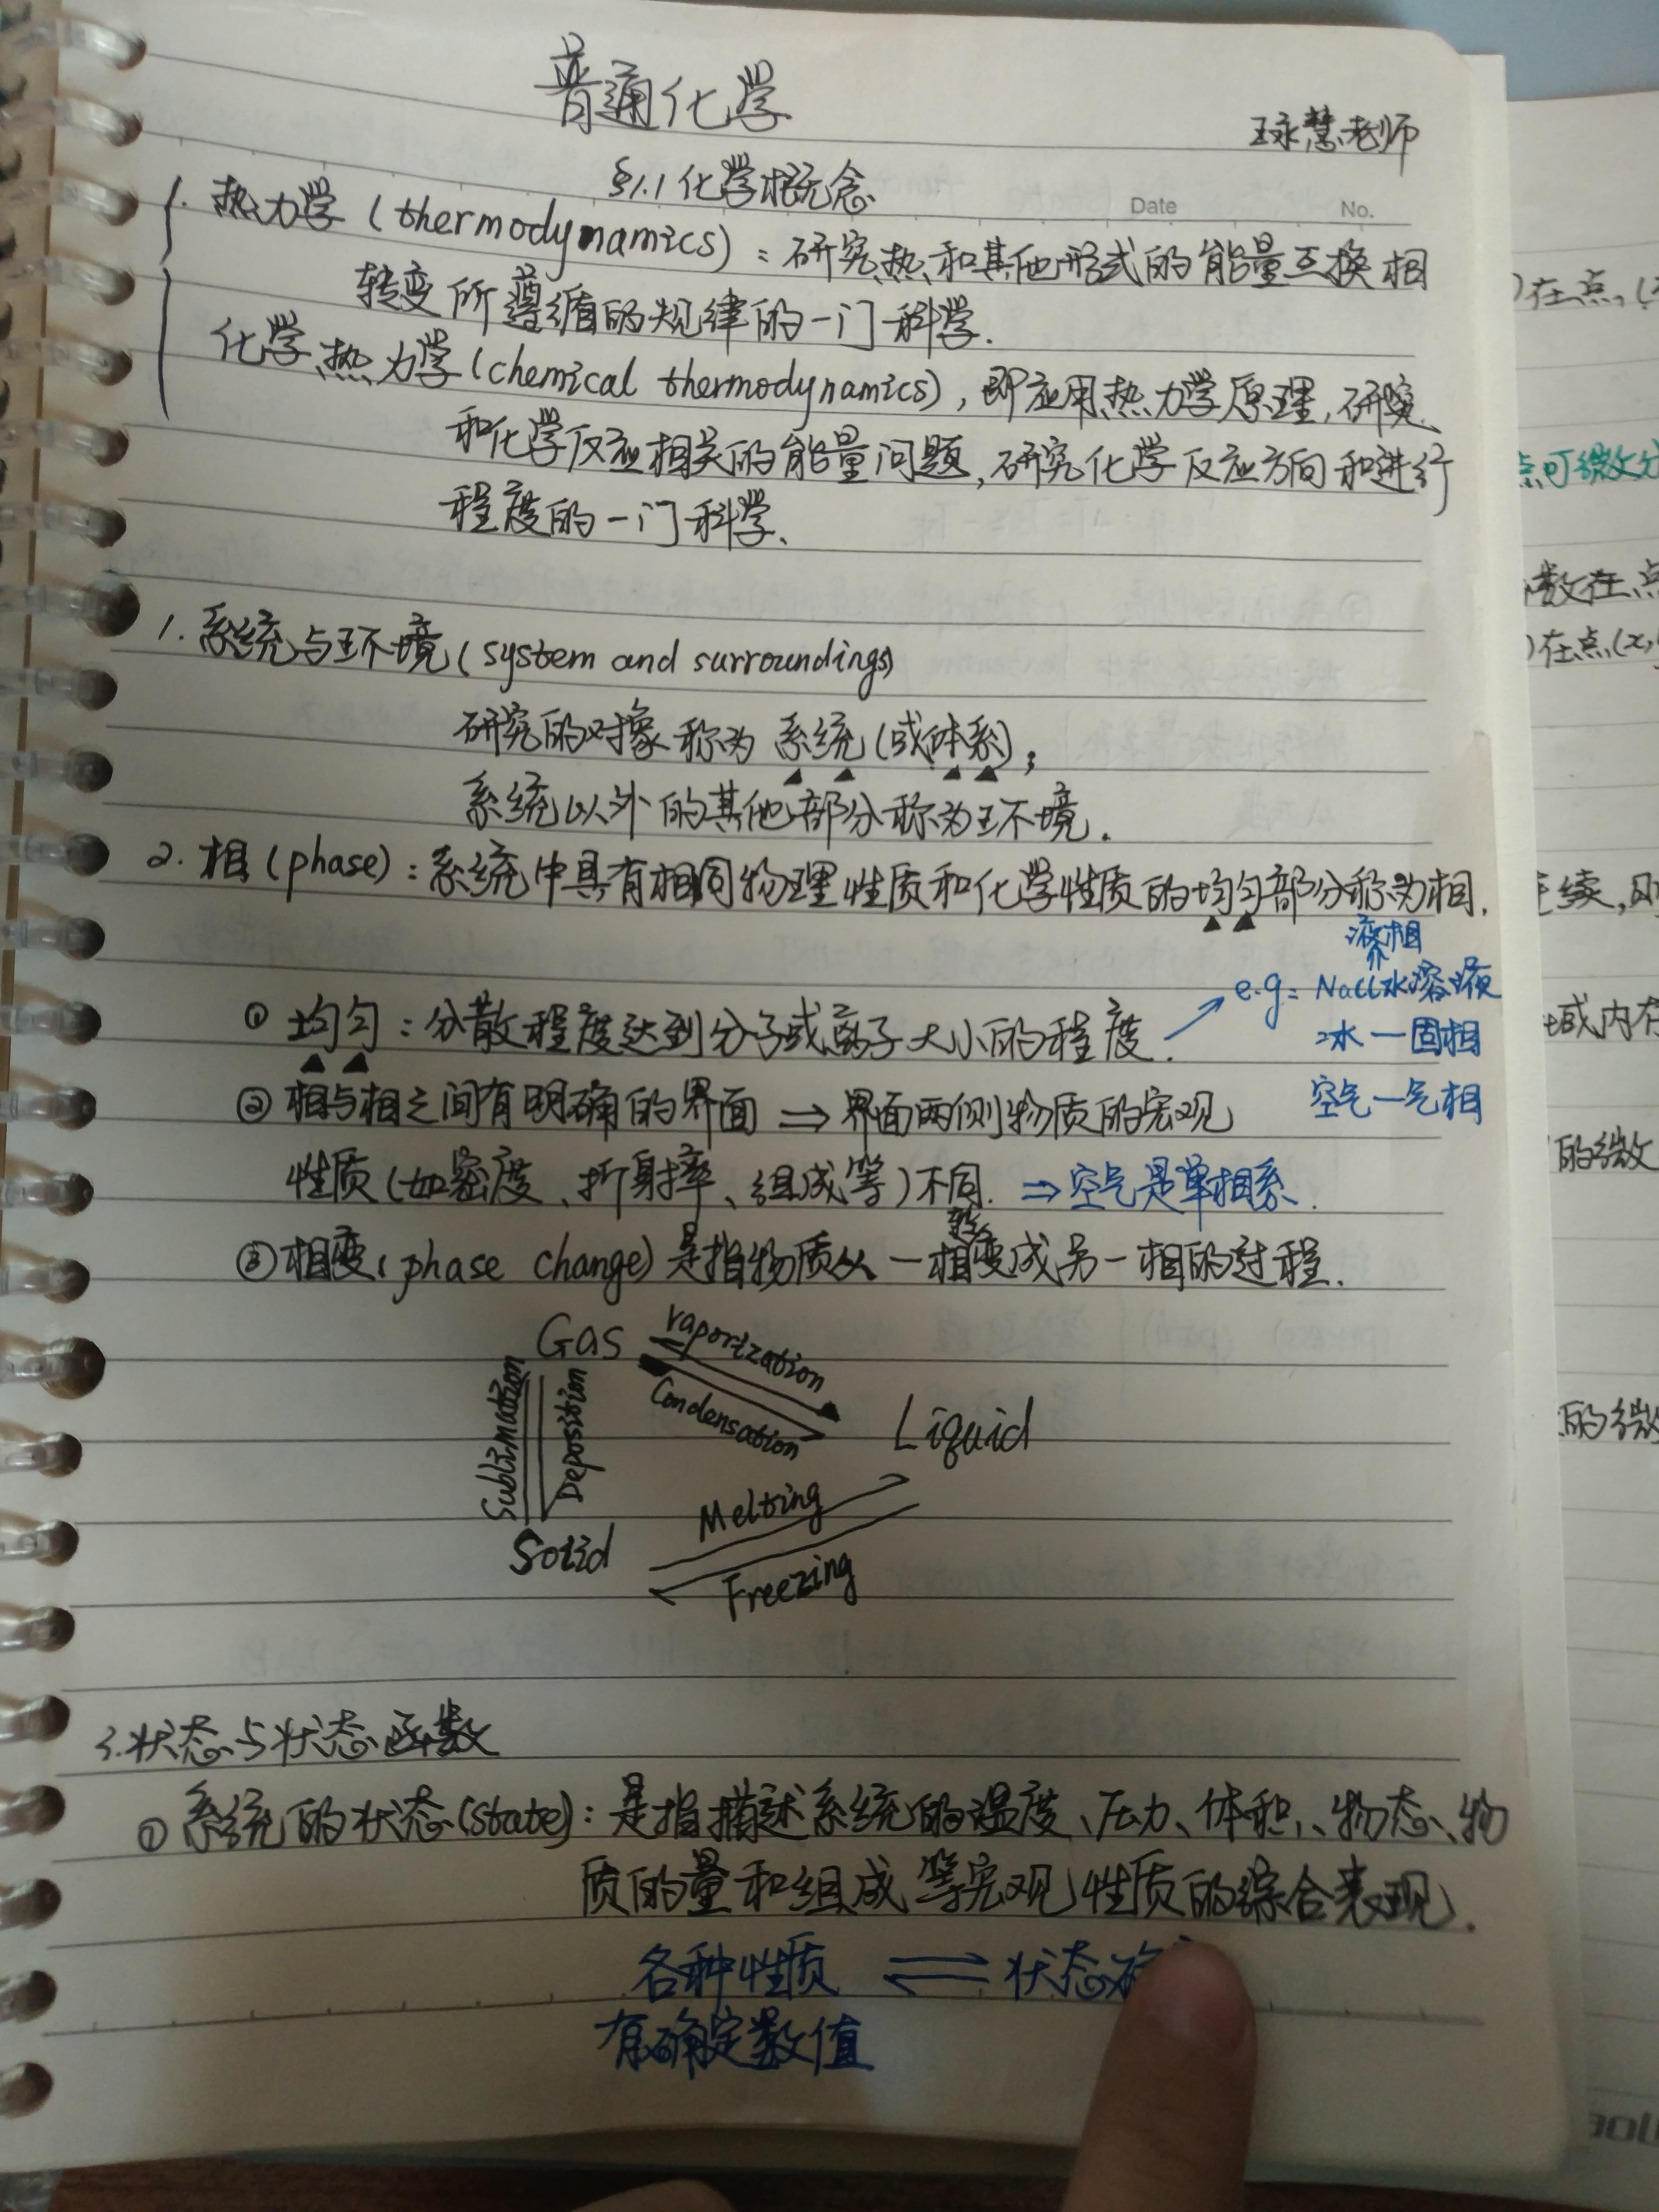 普通化学
王永慧老师
§1.1 化学概念
Date No.
1. 热力学 (thermodynamics): 研究热和其他形式的能量互换相
转变所遵循的规律的一门科学.
化学热力学 (chemical thermodynamics), 即应用热力学原理, 研究
和化学反应相关的能量问题, 研究化学反应方向和进行
程度的一门科学、
1. 系统与环境 (system and surroundings)
研究的对象称为 系统 (或体系);
系统以外的其他部分称为环境.
2. 相 (phase): 系统中具有相同物理性质和化学性质的均匀部分称为相.
液相
① 均匀: 分散程度达到分子或离子大小的程度.
e.g: NaCl水溶液
冰—固相
空气—气相
② 相与相之间有明确的界面 ⇒ 界面两侧物质的宏观
性质 (如密度、折射率、组成等) 不同. ⇒ 空气是单相系.
转
③ 相变 (phase change) 是指物质从一相变成另一相的过程.
Gas
vaporization
Condensation
Liquid
Sublimation
Deposition
Melting
Solid
Freezing
3. 状态与状态函数
① 系统的状态 (state): 是指描述系统的温度、压力、体积、物态、物
质的量和组成等宏观性质的综合表现.
各种性质 ⇌ 状态
有确定数值
)在点,(
点可微
数在点
)在点(x,
连续,则
域内存
的微
的微